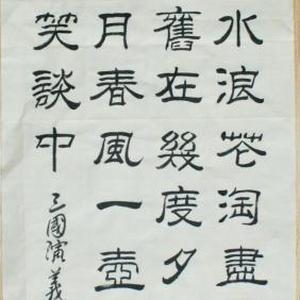 水浪花淘盡
舊在幾度夕
月春風一壺
笑談中
三國演義